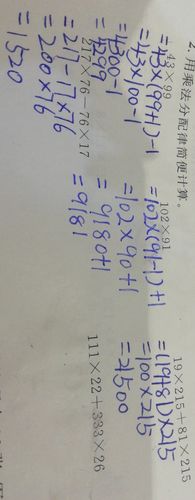 2. 用乘法分配律简便计算。
43×99
=43×(99+1)-1
=43×100-1
=4300-1
=4299
102×91
=102×(91-1)+1
=102×90+1
=9180+1
=9181
19×215+81×215
=(19+81)×215
=100×215
=21500
217×76-76×17
=217-17×76
=200×76
=1520
111×22+333×26